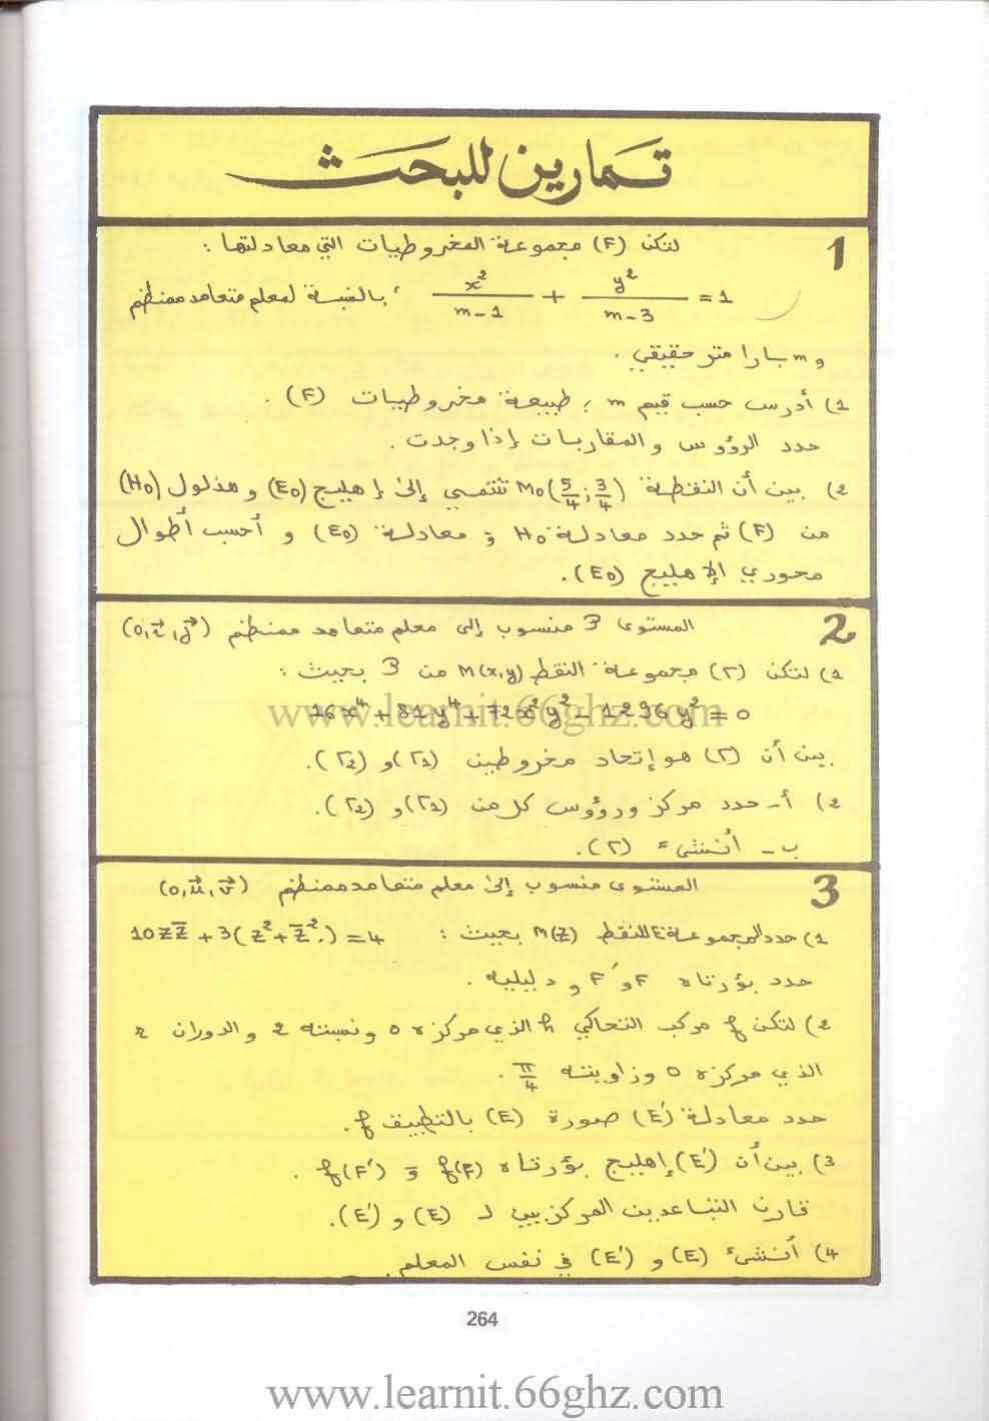 تمارين للبحث
1
لتكن (F) مجموعة المخروطيات التي معادلتها :
x²/(m-1) + y²/(m-3) = 1 ، بالنسبة لمعلم متعامد ممنظم
و m بارا متر حقيقي .
1) أدرس حسب قيم m ؛ طبيعة مخروطيات (F) .
حدد الرؤوس والمقاربات إذا وجدت .
2) بين أن النقطة M₀(5/4 ; 3/4) تنتمي إلى إهليلج (E₀) و هذلول (H₀)
من (F) ثم حدد معادلة H₀ و معادلة (E₀) و أحسب أطوال
محوري الإهليلج (E₀).
2
المستوى P منسوب إلى معلم متعامد ممنظم (o,i⃗,j⃗)
1) لتكن (Γ) مجموعة النقط M(x,y) من P بحيث :
16x⁴ + 81y⁴ + 72x²y² - 1296y² = 0
بين أن (Γ) هو إتحاد مخروطين (Γ₁) و (Γ₂).
2) أ- حدد مركز ورؤوس كل من (Γ₁) و (Γ₂).
ب - أنشىء (Γ).
3
المستوى منسوب إلى معلم متعامد ممنظم (o,u⃗,v⃗)
1) حدد المجموعة E للنقط M(z) بحيث : 10zz̄ + 3(z² + z̄²) = 4
حدد بؤرتاه F و F′ و دليليه .
2) لتكن f مركب التحاكي h الذي مركزه o ونسبته 2 والدوران r
الذي مركزه o وزاويته π/4 .
حدد معادلة (E′) صورة (E) بالتطبيق f.
3) بين أن (E′) إهليلج بؤرتاه f(F) و f(F′) .
قارن التباعدين المركزيين لـ (E) و (E′).
4) أنشىء (E) و (E′) في نفس المعلم.
264
www.learnit.66ghz.com
www.learnit.66ghz.com